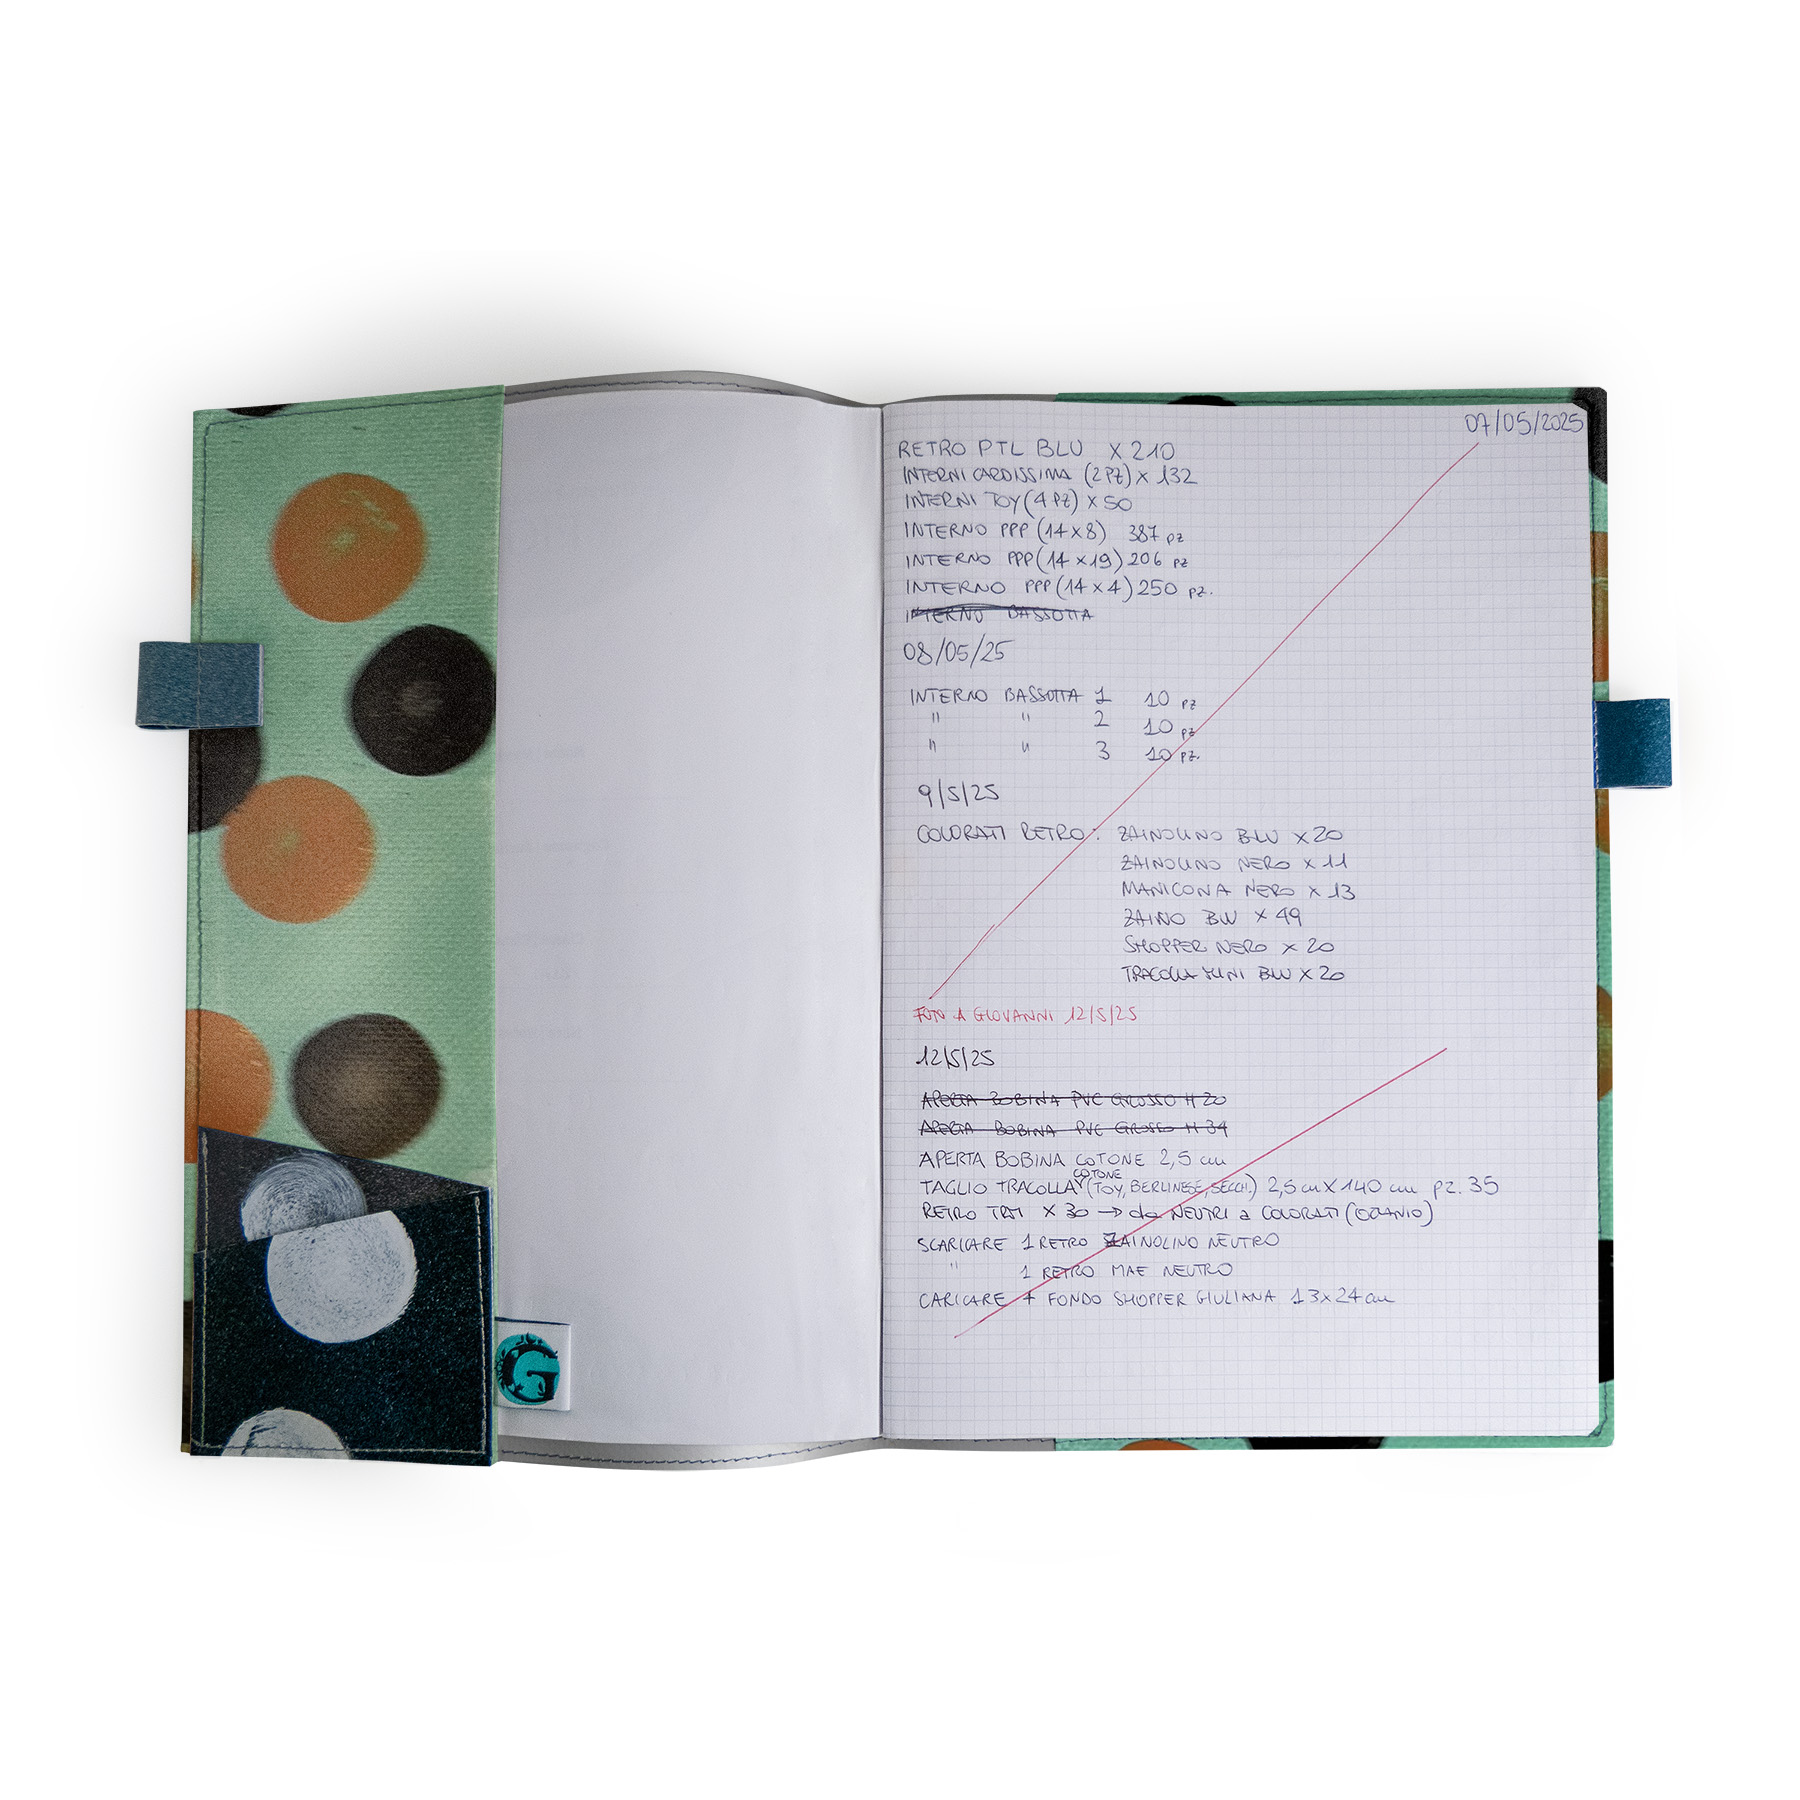 07/05/2025
RETRO PTL BLU X 210
INTERNI CARDISSIMA (2 PZ) X 132
INTERNI TOY (4 PZ) X 50
INTERNO PPP (14 X 8) 387 PZ
INTERNO PPP (14 X 19) 206 PZ
INTERNO PPP (14 X 4) 250 PZ.
INTERNO BASSOTTA
08/05/25
INTERNO BASSOTTA 1 10 PZ
" " 2 10 PZ
" " 3 10 PZ.
9/5/25
COLORATI RETRO: ZAINOLINO BLU X 20
ZAINOLINO NERO X 11
MANICONA NERO X 13
ZAINO BLU X 49
SHOPPER NERO X 20
TRACOLLA BLU X 20
FOTO A GIOVANNI 12/5/25
12/5/25
APERTA BOBINA PVC GROSSO H 20
APERTA BOBINA PVC GROSSO H 34
APERTA BOBINA COTONE 2,5 cm
TAGLIO TRACOLLA COTONE (TOY, BERLINESE, SECCH.) 2,5 cm X 140 cm PZ. 35
RETRO X 30 → da NEUTRI a COLORATI (OTTANIO)
SCARICARE 1 RETRO ZAINOLINO NEUTRO
" 1 RETRO MAE NEUTRO
CARICARE + FONDO SHOPPER GIULIANA 13 x 24 cm
G